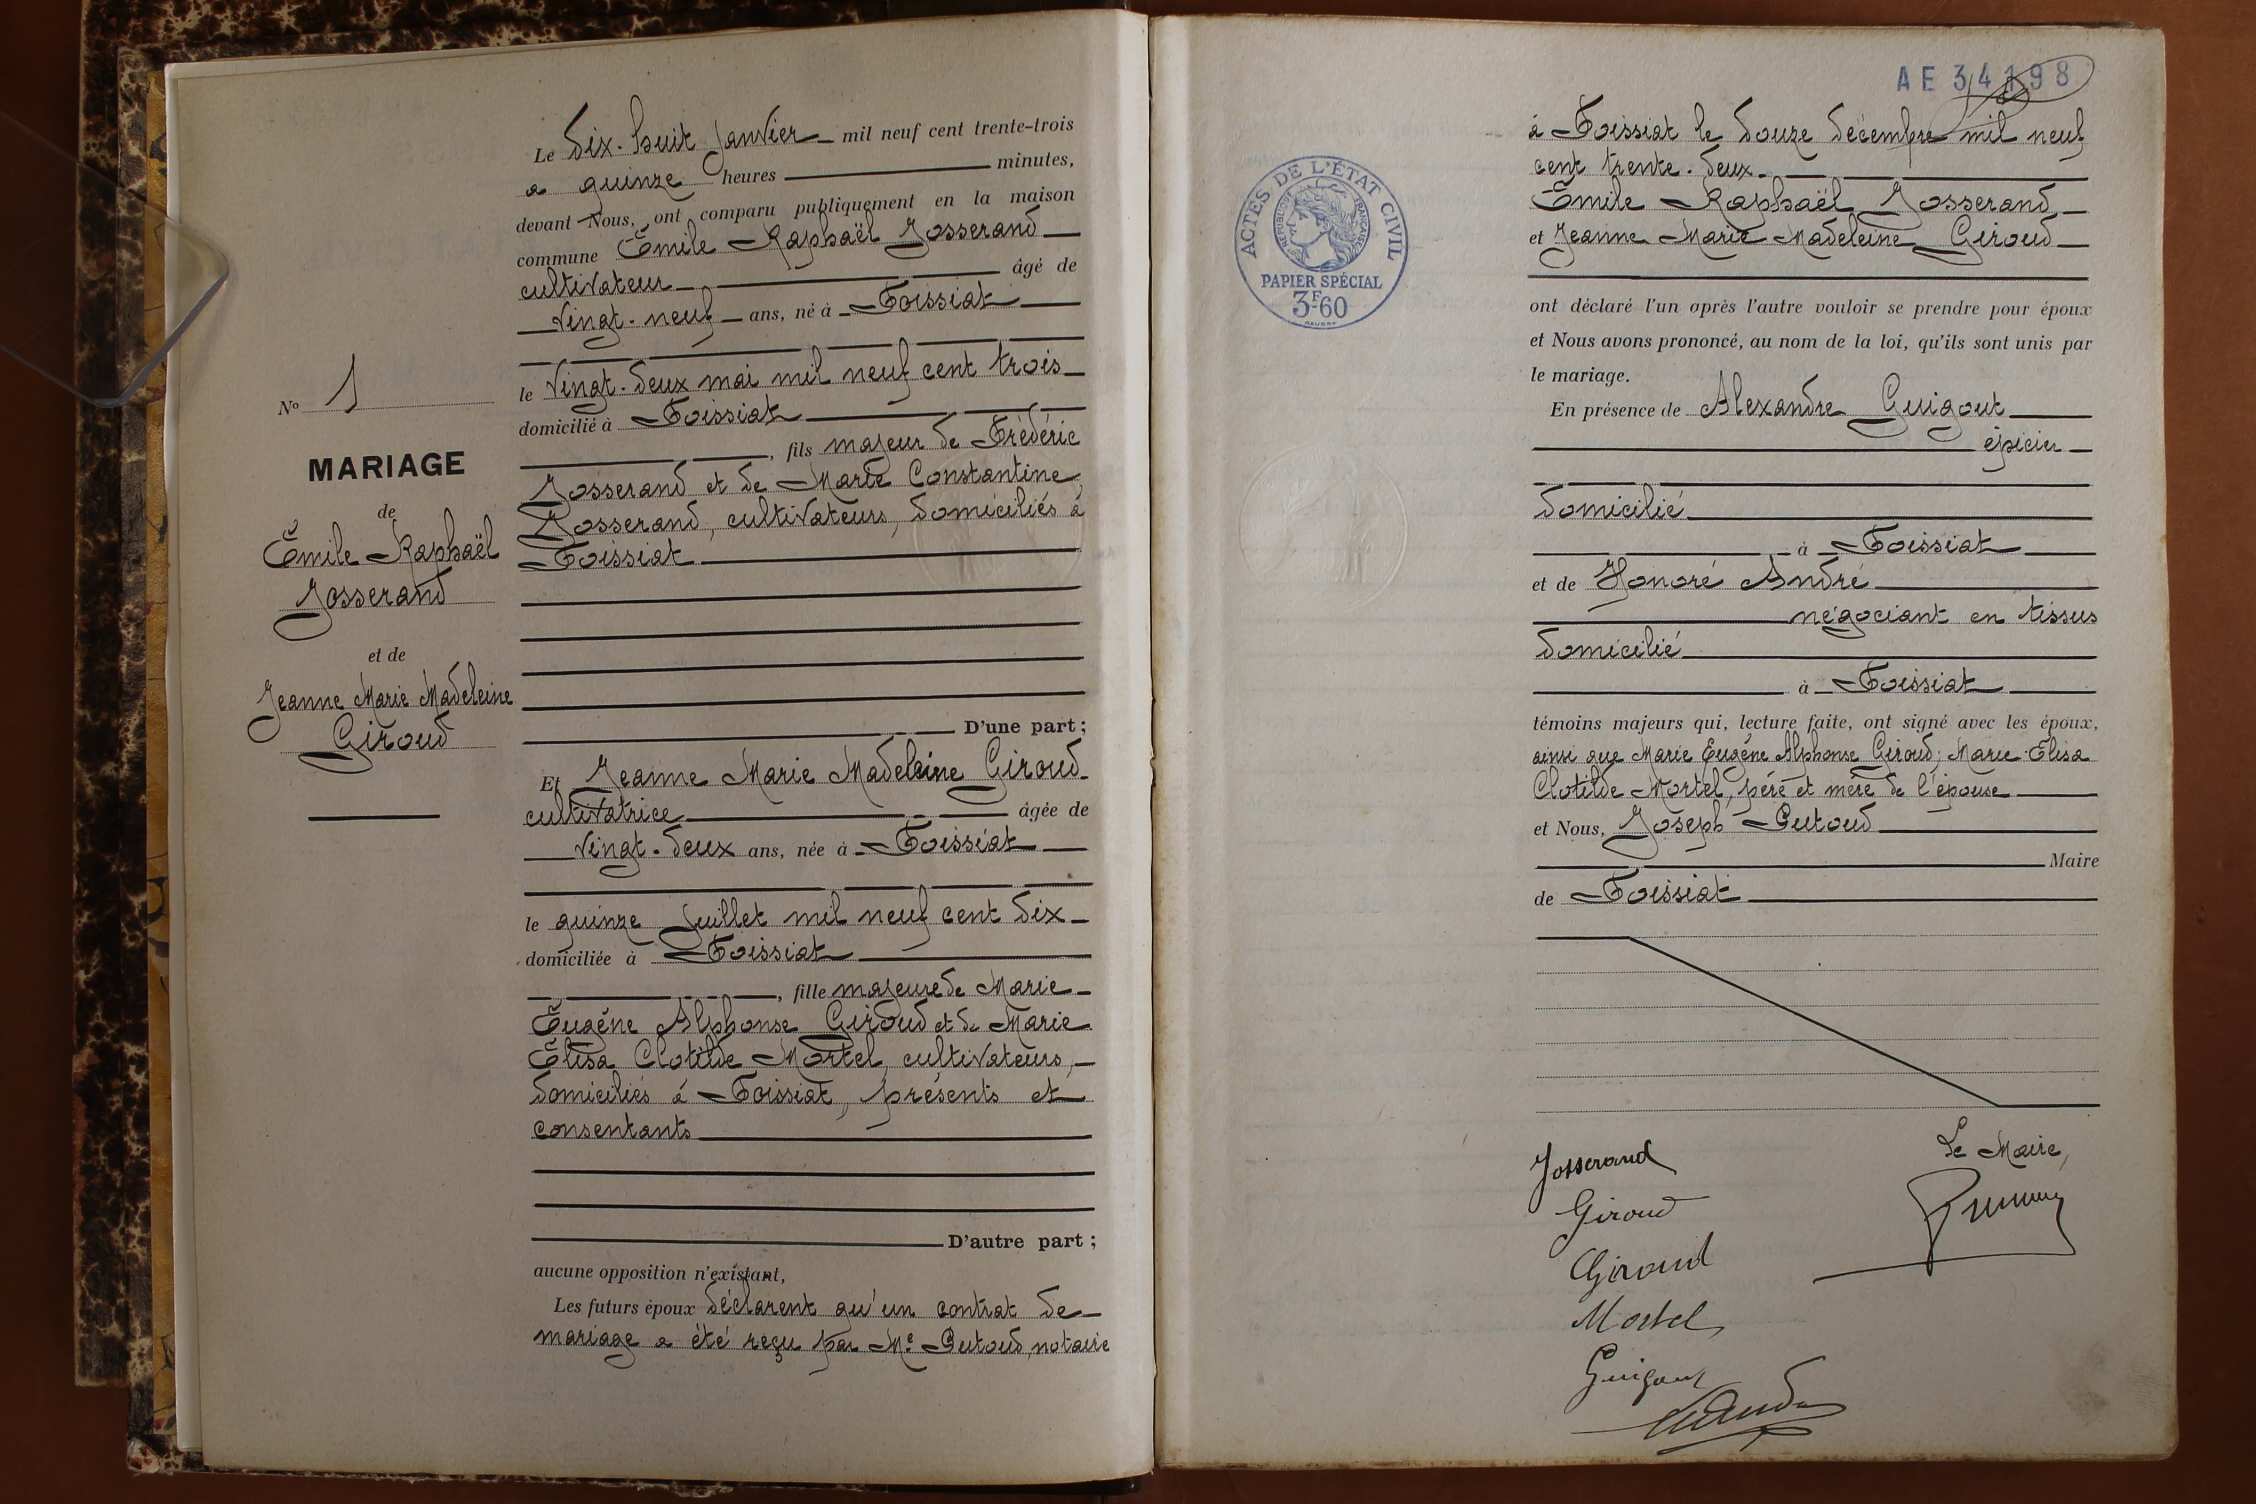 Le dix-huit janvier mil neuf cent trente-trois
a quinze heures minutes,
devant Nous, ont comparu publiquement en la maison
commune Emile Raphaël Josserand
cultivateur âgé de
vingt-neuf ans, né à Foissiat
le vingt-deux mai mil neuf cent trois
domicilié à Foissiat
, fils majeur de Frédéric
Josserand et de Marie Constantine
Josserand, cultivateurs, domiciliés à
Foissiat
D'une part;
Et Jeanne Marie Madeleine Giroud
cultivatrice âgée de
vingt-deux ans, née à Foissiat
le quinze juillet mil neuf cent dix
domiciliée à Foissiat
, fille majeure de Marie
Eugène Alphonse Giroud et de Marie
Elisa Clotilde Mortel, cultivateurs,
domiciliés à Foissiat, présents et
consentants
D'autre part;
aucune opposition n'existant,
Les futurs époux déclarent qu'un contrat de
mariage a été reçu par Me Putoud, notaire
No 1
MARIAGE
de
Emile Raphaël
Josserand
et de
Jeanne Marie Madeleine
Giroud
AE 34198
ACTES DE L'ÉTAT CIVIL
RÉPUBLIQUE FRANÇAISE
PAPIER SPÉCIAL
3F60
à Foissiat le douze décembre mil neuf
cent trente-deux.
Emile Raphaël Josserand
et Jeanne Marie Madeleine Giroud
ont déclaré l'un après l'autre vouloir se prendre pour époux
et Nous avons prononcé, au nom de la loi, qu'ils sont unis par
le mariage.
En présence de Alexandre Guigout
épicier
domicilié
à Foissiat
et de Honoré André
négociant en tissus
domicilié
à Foissiat
témoins majeurs qui, lecture faite, ont signé avec les époux,
ainsi que Marie Eugène Alphonse Giroud; Marie Elisa
Clotilde Mortel, père et mère de l'épouse
et Nous, Joseph Putoud
Maire
de Foissiat
Le Maire,
Josserand
Giroud
Giroud
Mortel
Guigout